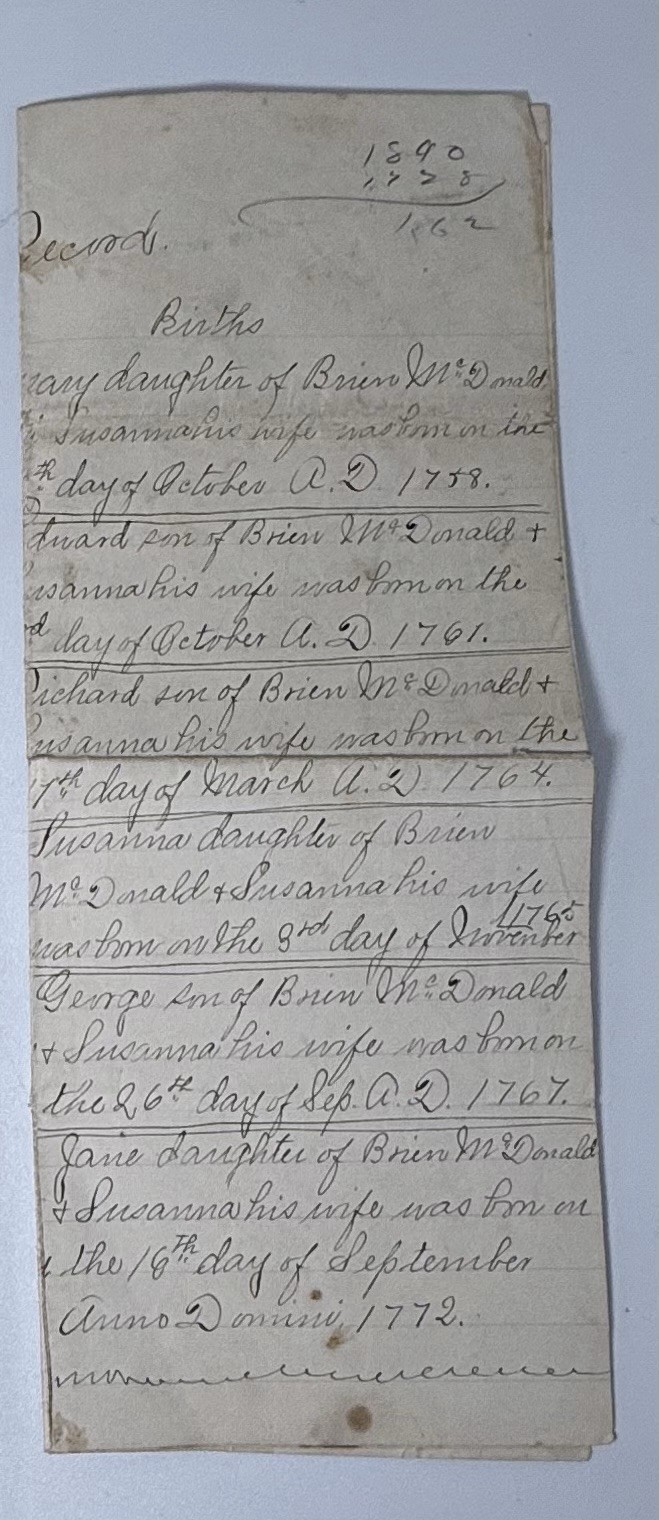 1890
1728
162
Record.
Births
mary daughter of Brien McDonald
& Susanna his wife was born on the
th day of October A.D. 1758.
dward son of Brien McDonald +
usanna his wife was born on the
d day of October A.D. 1761.
Richard son of Brien McDonald +
Susanna his wife was born on the
17th day of March A.D. 1764.
Susanna daughter of Brien
McDonald + Susanna his wife
1765
was born on the 3rd day of November
George son of Brien McDonald
+ Susanna his wife was born on
the 26th day of Sep. A.D. 1767.
Jane daughter of Brien McDonald
& Susanna his wife was born on
the 16th day of September
Anno Domini, 1772.